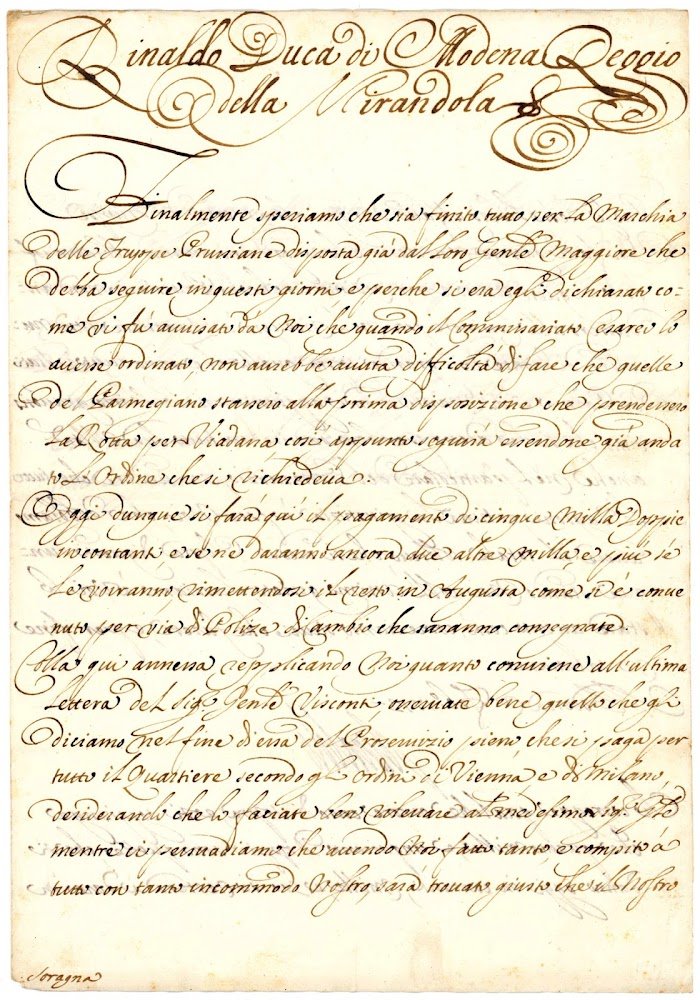 Rinaldo Duca di Modena Reggio
Della Mirandola &
Finalmente speriamo che sia finito tutto per La Marchia
delle Truppe Prussiane disposta già dal loro Gen̄le Maggiore che
debba seguire in questi giorni e perche si era egli dichiarato co-
me vi fú avvisato da Noi che quando il Commissariato Cesareo lo
avesse ordinato, non aurebbe avuta difficoltà di fare che quelle
del Parmegiano stassero alla prima disposizione che prendessero
La Rotta per Viadana così appunto seguirà essendone già anda
to L'Ordine che si richiedeva.
Oggi dunque si farà qui il pagamento di cinque milla Doppie
in contanti e se ne daranno ancora due altre milla, e più se
Le vorranno rimettendosi il resto in Augusta come si è conve
nuto per via di Polize di Cambio che saranno consegnate.
Colla qui annessa replicando Noi quanto conviene all'ultima
Lettera del Sig.r Gen̄le Visconti osservate bene quello che gli
diciamo nel fine di essa del Proservizio pieno, che si paga per
tutto il Quartiere secondo gl'ordini di Vienna, e di Milano,
desiderando che lo facciate ben rilevare al medesimo Sig.r G̅le
mentre ci persuadiamo che avendo Noi fatto tanto e compito à
tutto con tanto incommodo Nostro, sarà trovato giusto che il Nostro
Soragna